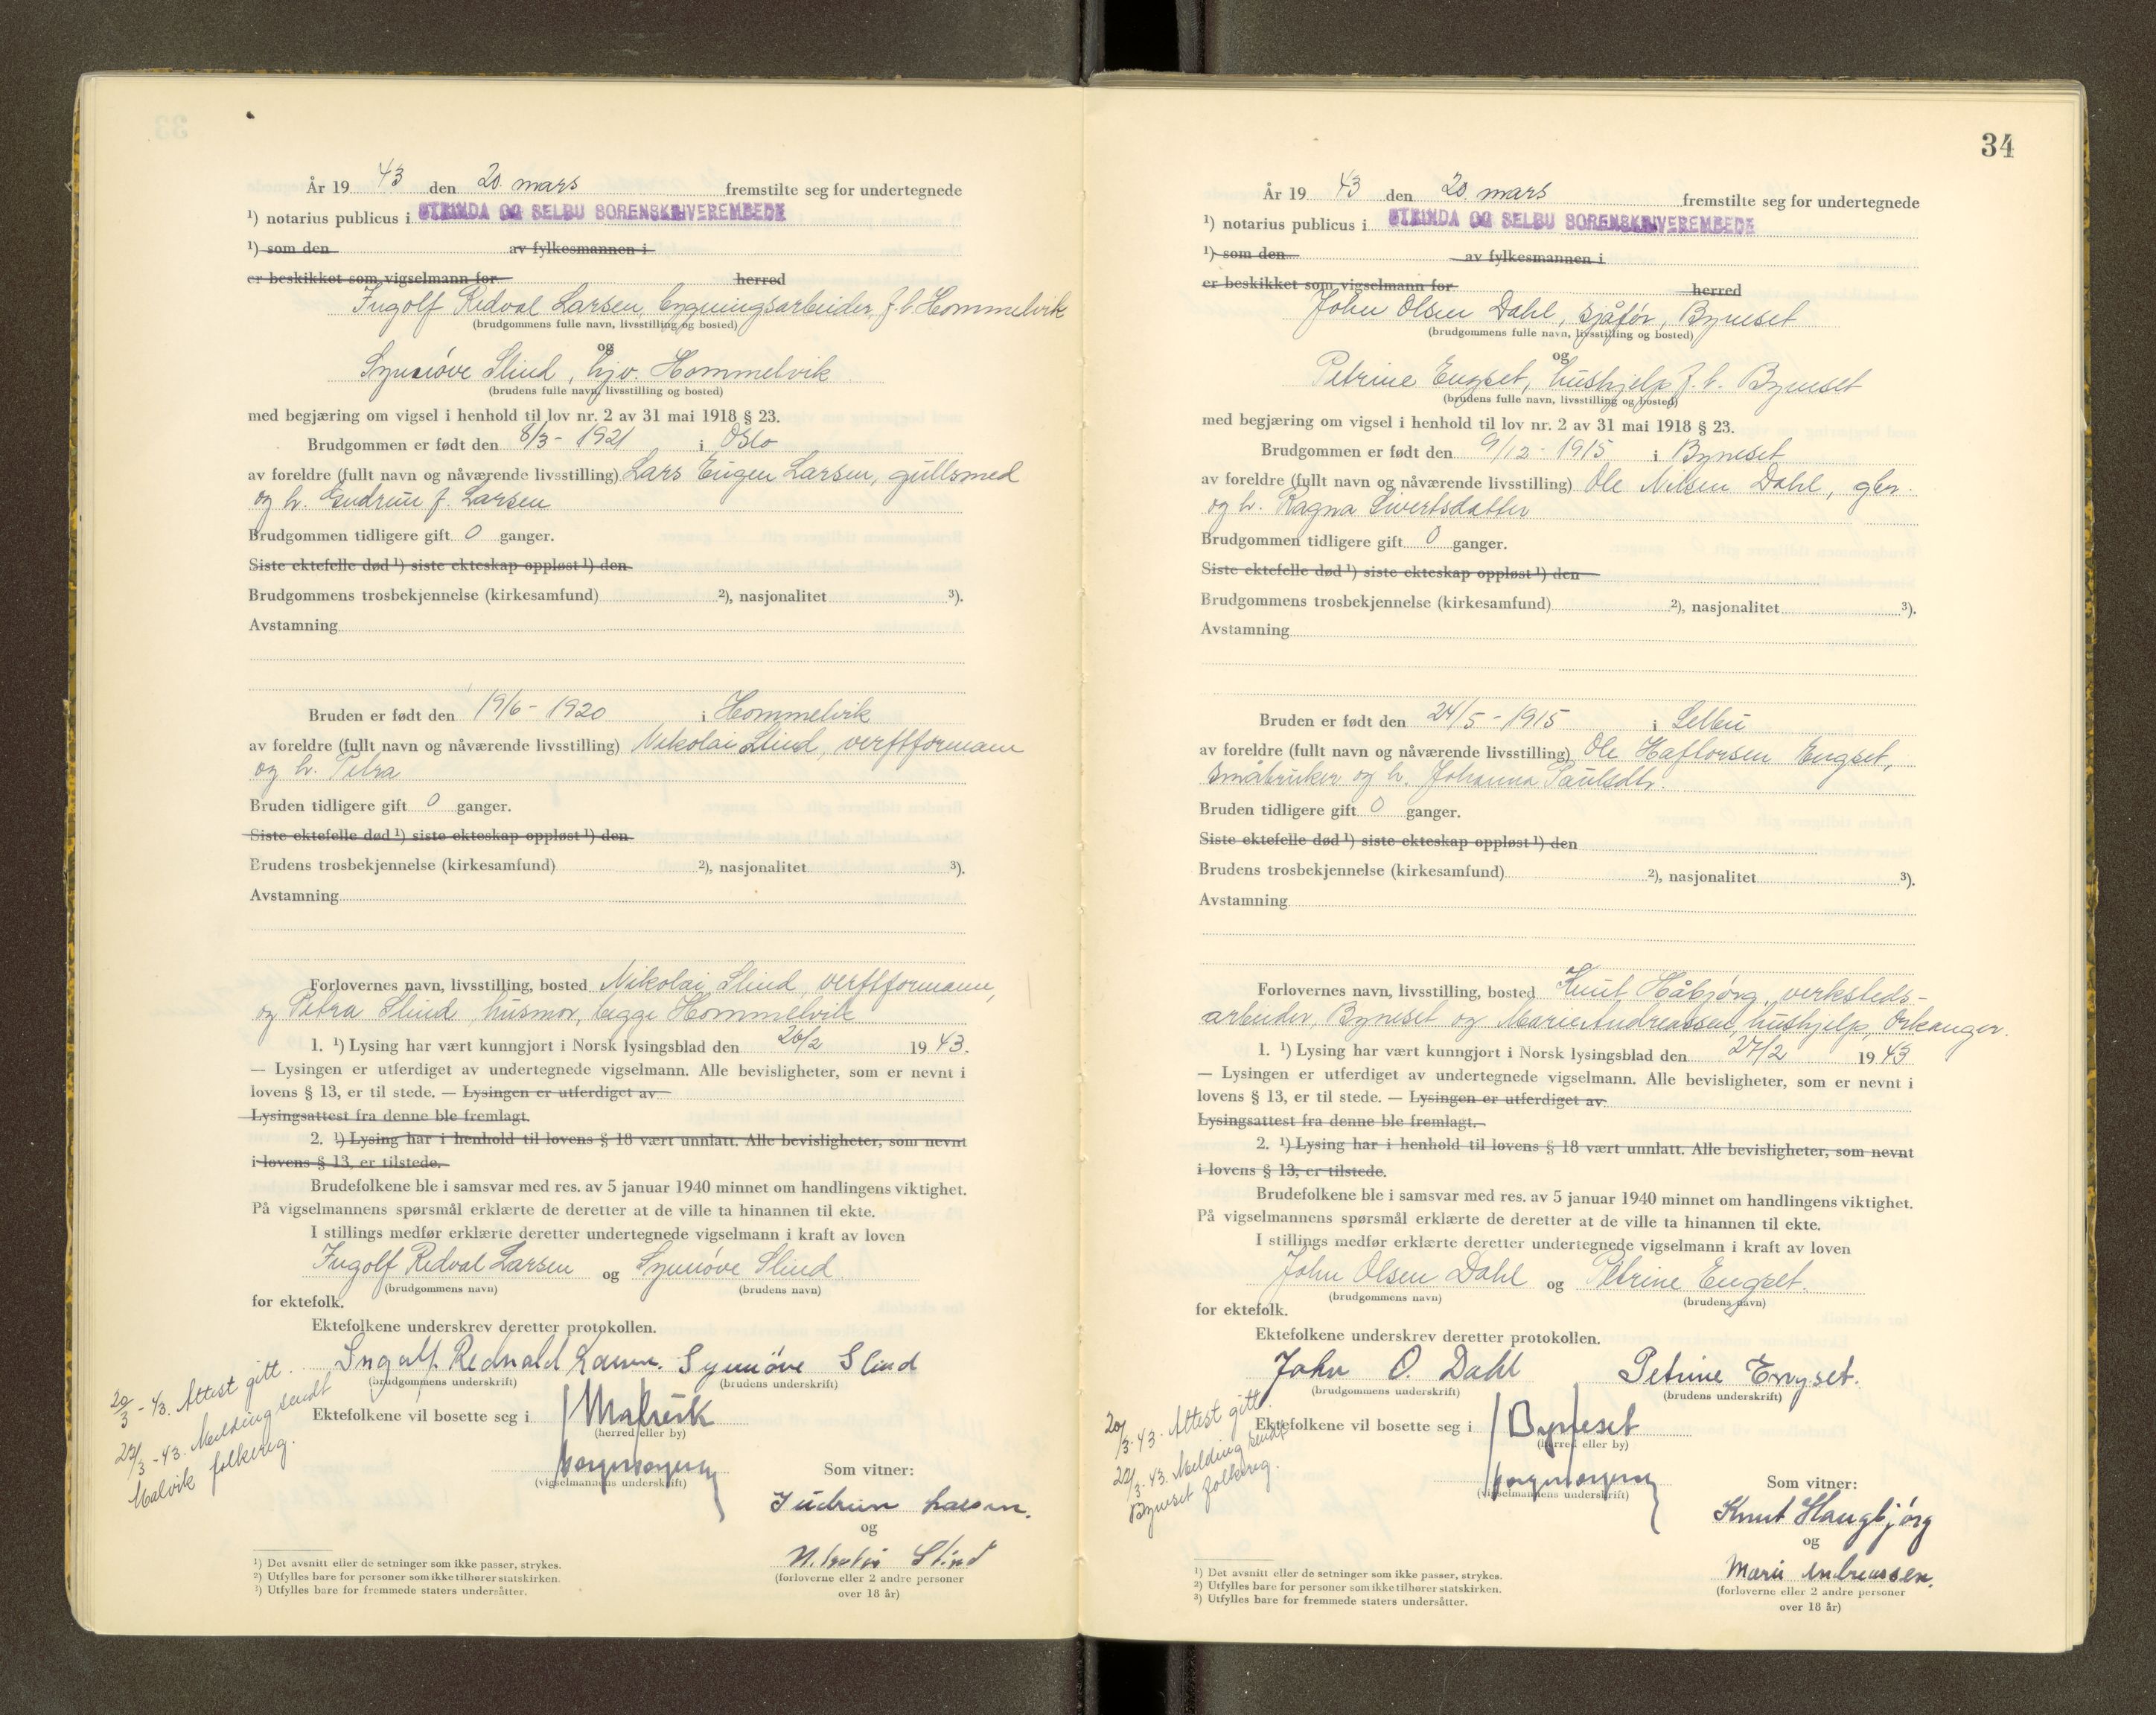 År 19 43 den 20. mars fremstilte seg for undertegnede
¹) notarius publicus i STRINDA OG SELBU SORENSKRIVEREMBEDE
¹) som den av fylkesmannen i
er beskikket som vigselmann for herred
Ingolf Redval Larsen, bygningsarbeider, f.b. Hommelvik
(brudgommens fulle navn, livsstilling og bosted)
og
Synnöve Slind, hjv. Hommelvik
(brudens fulle navn, livsstilling og bosted)
med begjæring om vigsel i henhold til lov nr. 2 av 31 mai 1918 § 23.
Brudgommen er født den 8/3 - 1921 i Oslo
av foreldre (fullt navn og nåværende livsstilling) Lars Eugen Larsen, gullsmed
og h. Gudrun f. Larsen
Brudgommen tidligere gift 0 ganger.
Siste ektefelle død ¹) siste ekteskap oppløst ¹) den
Brudgommens trosbekjennelse (kirkesamfund) ²), nasjonalitet ³).
Avstamning
Bruden er født den 19/6 - 1920 i Hommelvik
av foreldre (fullt navn og nåværende livsstilling) Nikolai Slind, verftformann
og h. Petra
Bruden tidligere gift 0 ganger.
Siste ektefelle død ¹) siste ekteskap oppløst ¹) den
Brudens trosbekjennelse (kirkesamfund) ²), nasjonalitet ³).
Avstamning
Forlovernes navn, livsstilling, bosted Nikolai Slind, verftformann,
og Petra Slind, husmor, begge Hommelvik
1. ¹) Lysing har vært kunngjort i Norsk lysingsblad den 26/2 19 43.
— Lysingen er utferdiget av undertegnede vigselmann. Alle bevisligheter, som er nevnt i
lovens § 13, er til stede. — Lysingen er utferdiget av
Lysingsattest fra denne ble fremlagt.
2. ¹) Lysing har i henhold til lovens § 18 vært unnlatt. Alle bevisligheter, som nevnt
i lovens § 13, er tilstede.
Brudefolkene ble i samsvar med res. av 5 januar 1940 minnet om handlingens viktighet.
På vigselmannens spørsmål erklærte de deretter at de ville ta hinannen til ekte.
I stillings medfør erklærte deretter undertegnede vigselmann i kraft av loven
Ingolf Redval Larsen og Synnöve Slind
(brudgommens navn) (brudens navn)
for ektefolk.
Ektefolkene underskrev deretter protokollen.
Ingolf Rednald Larsen. Synnöve Slind
(brudgommens underskrift) (brudens underskrift)
Ektefolkene vil bosette seg i Malvik
(herred eller by)
(vigselmannens underskrift)
Som vitner:
Gudrun Larsen.
og
Nikolai Slind
(forloverne eller 2 andre personer
over 18 år)
20/3 - 43. Attest gitt.
22/3 - 43. Melding sendt
Malvik folkereg.
¹) Det avsnitt eller de setninger som ikke passer, strykes.
²) Utfylles bare for personer som ikke tilhører statskirken.
³) Utfylles bare for fremmede staters undersåtter.
34
År 19 43 den 20. mars fremstilte seg for undertegnede
¹) notarius publicus i STRINDA OG SELBU SORENSKRIVEREMBEDE
¹) som den av fylkesmannen i
er beskikket som vigselmann for herred
John Olsen Dahl, sjåfør, Byneset
(brudgommens fulle navn, livsstilling og bosted)
og
Petrine Engset, hushjelp f.b. Byneset
(brudens fulle navn, livsstilling og bosted)
med begjæring om vigsel i henhold til lov nr. 2 av 31 mai 1918 § 23.
Brudgommen er født den 9/12 - 1915 i Byneset
av foreldre (fullt navn og nåværende livsstilling) Ole Nilsen Dahl, gbr.
og h. Ragna Sivertsdatter
Brudgommen tidligere gift 0 ganger.
Siste ektefelle død ¹) siste ekteskap oppløst ¹) den
Brudgommens trosbekjennelse (kirkesamfund) ²), nasjonalitet ³).
Avstamning
Bruden er født den 24/5 - 1915 i Selbu
av foreldre (fullt navn og nåværende livsstilling) Ole Haftorsen Engset,
småbruker og h. Johanna Paulsdtr.
Bruden tidligere gift 0 ganger.
Siste ektefelle død ¹) siste ekteskap oppløst ¹) den
Brudens trosbekjennelse (kirkesamfund) ²), nasjonalitet ³).
Avstamning
Forlovernes navn, livsstilling, bosted Knut Håbjørg, verksteds-
arbeider, Byneset og Marie Andreassen, hushjelp, Orkanger.
1. ¹) Lysing har vært kunngjort i Norsk lysingsblad den 27/2 19 43
— Lysingen er utferdiget av undertegnede vigselmann. Alle bevisligheter, som er nevnt i
lovens § 13, er til stede. — Lysingen er utferdiget av
Lysingsattest fra denne ble fremlagt.
2. ¹) Lysing har i henhold til lovens § 18 vært unnlatt. Alle bevisligheter, som nevnt
i lovens § 13, er tilstede.
Brudefolkene ble i samsvar med res. av 5 januar 1940 minnet om handlingens viktighet.
På vigselmannens spørsmål erklærte de deretter at de ville ta hinannen til ekte.
I stillings medfør erklærte deretter undertegnede vigselmann i kraft av loven
John Olsen Dahl og Petrine Engset.
(brudgommens navn) (brudens navn)
for ektefolk.
Ektefolkene underskrev deretter protokollen.
John O. Dahl Petrine Engset.
(brudgommens underskrift) (brudens underskrift)
Ektefolkene vil bosette seg i Byneset
(herred eller by)
(vigselmannens underskrift)
Som vitner:
Knut Haugbjórg
og
Marie Andreassen.
(forloverne eller 2 andre personer
over 18 år)
20/3 - 43. Attest gitt.
22/3 - 43. Melding sendt
Byneset folkereg.
¹) Det avsnitt eller de setninger som ikke passer, strykes.
²) Utfylles bare for personer som ikke tilhører statskirken.
³) Utfylles bare for fremmede staters undersåtter.